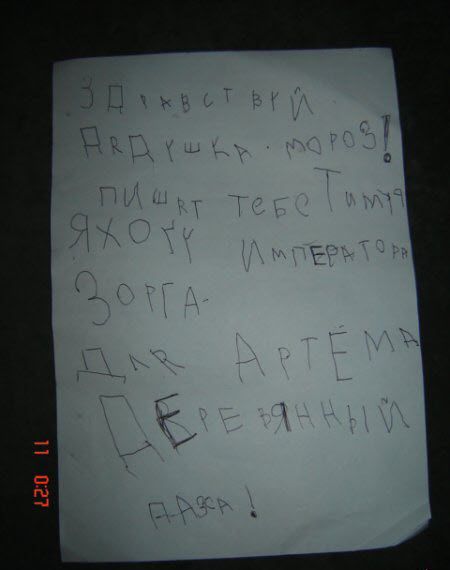 ЗДРАВСТВУЙ
ДЯДУШКА · МОРОЗ!
ПИШЯТ ТЕБЕ ТИМУР
ЯХОЧУ ИМПЕРАТОРА
ЗОРГА-
ДЛЯ АРТЁМА
ДЕРЕВЯННЫЙ
11 0:27